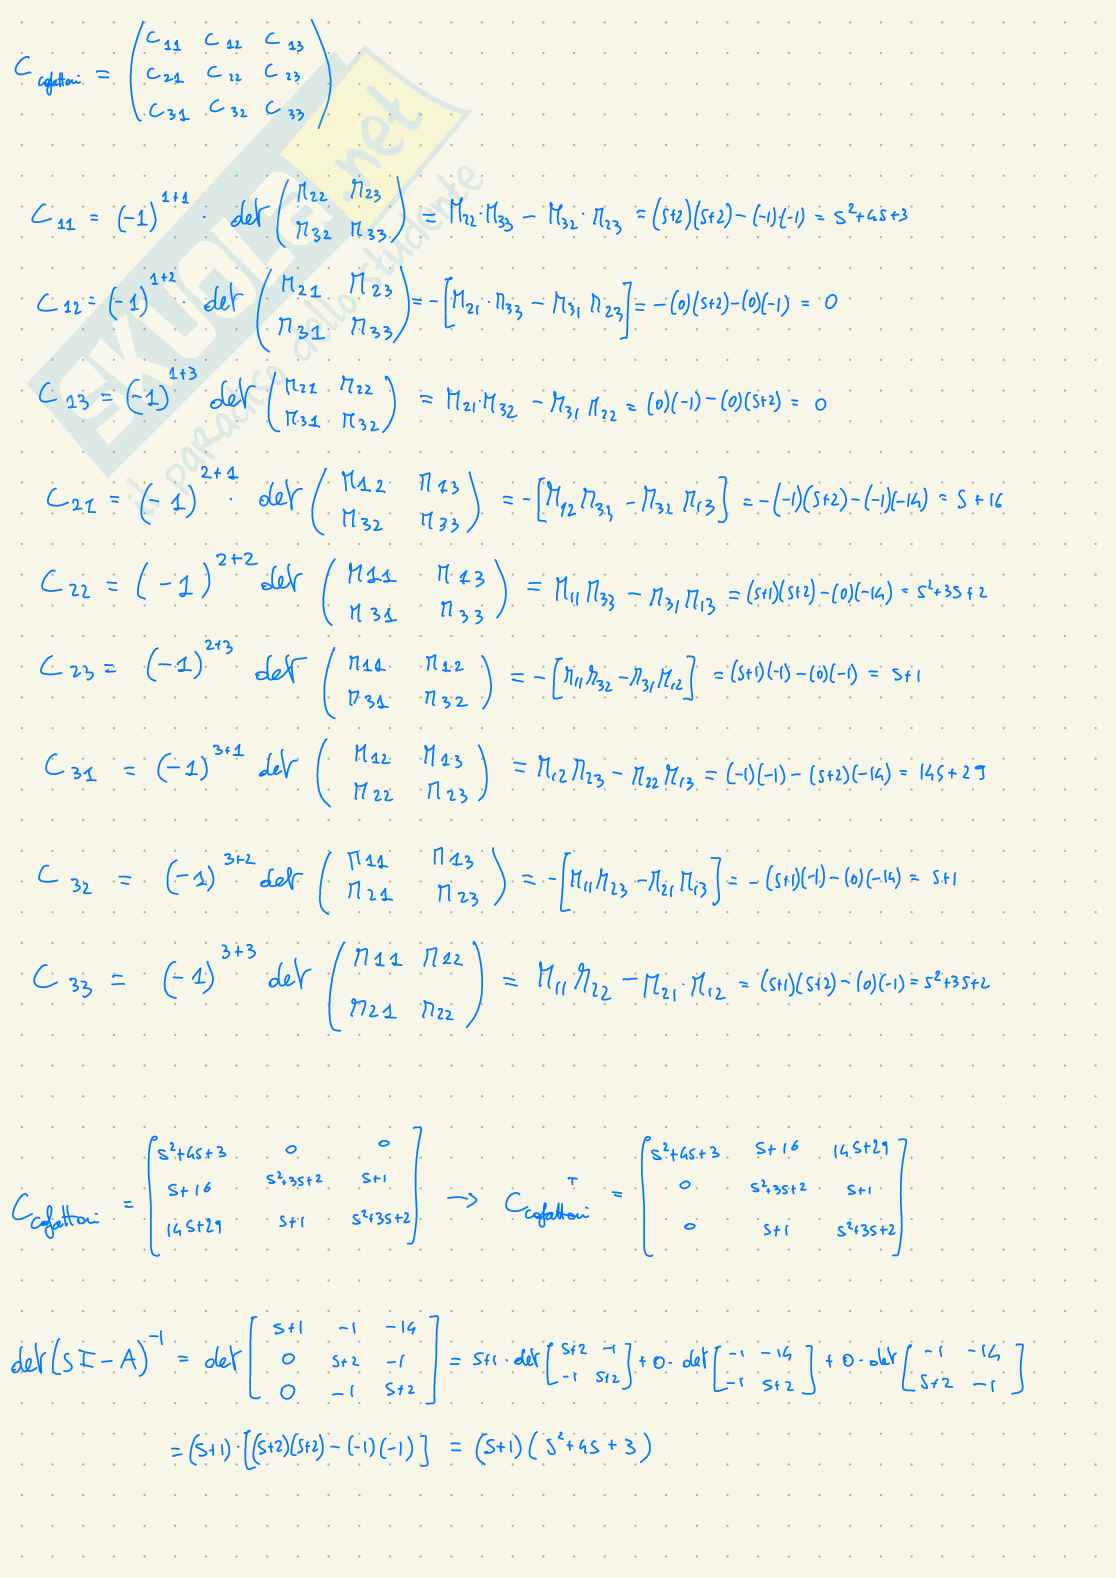 C cofattori = ( C11 C12 C13
C21 C22 C23
C31 C32 C33 )
C11 = (-1)^1+1 · det ( M22 M23
M32 M33 ) = M22·M33 - M32·M23 = (s+2)(s+2)-(-1)(-1) = s²+4s+3
C12 = (-1)^1+2 · det ( M21 M23
M31 M33 ) = -[M21·M33 - M31 M23] = -(0)(s+2)-(0)(-1) = 0
C13 = (-1)^1+3 det ( M21 M22
M31 M32 ) = M21·M32 - M31 M22 = (0)(-1)-(0)(s+2) = 0
C21 = (-1)^2+1 · det ( M12 M13
M32 M33 ) = -[M12 M33 - M32 M13] = -(-1)(s+2)-(-1)(-14) = s+16
C22 = (-1)^2+2 det ( M11 M13
M31 M33 ) = M11 M33 - M31 M13 = (s+1)(s+2)-(0)(-14) = s²+3s+2
C23 = (-1)^2+3 det ( M11 M12
M31 M32 ) = -[M11 M32 - M31 M12] = (s+1)(-1)-(0)(-1) = s+1
C31 = (-1)^3+1 det ( M12 M13
M22 M23 ) = M12 M23 - M22 M13 = (-1)(-1)-(s+2)(-14) = 14s+29
C32 = (-1)^3+2 det ( M11 M13
M21 M23 ) = -[M11 M23 - M21 M13] = -(s+1)(-1)-(0)(-14) = s+1
C33 = (-1)^3+3 det ( M11 M12
M21 M22 ) = M11 M22 - M21·M12 = (s+1)(s+2)-(0)(-1) = s²+3s+2
C cofattori = [ s²+4s+3 0 0
s+16 s²+3s+2 s+1
14s+29 s+1 s²+3s+2 ] → C cofattori^T = [ s²+4s+3 s+16 14s+29
0 s²+3s+2 s+1
0 s+1 s²+3s+2 ]
det(sI-A)^-1 = det [ s+1 -1 -14
0 s+2 -1
0 -1 s+2 ] = s+1 · det [ s+2 -1
-1 s+2 ] + 0 · det [ -1 -14
-1 s+2 ] + 0 · det [ -1 -14
s+2 -1 ]
= (s+1)·[(s+2)(s+2)-(-1)(-1)] = (s+1)(s²+4s+3)
SKUOLA.net
il paradiso dello studente